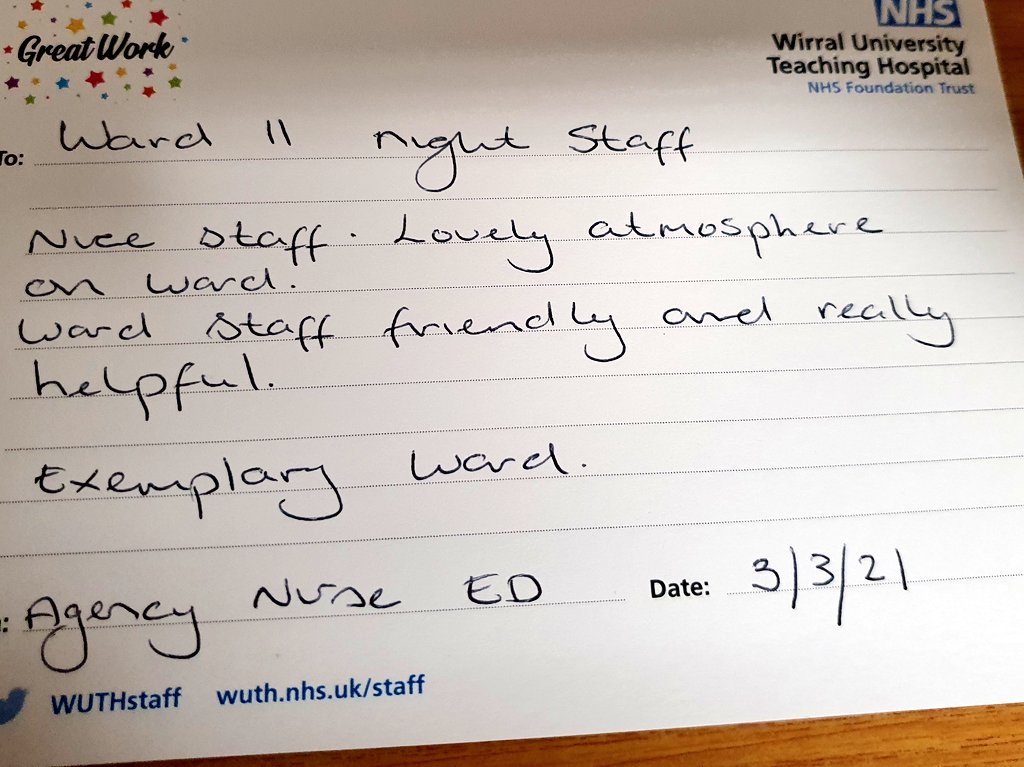 Great Work
NHS
Wirral University
Teaching Hospital
NHS Foundation Trust
To: Ward 11 night Staff
Nice staff. Lovely atmosphere
on ward.
Ward staff friendly and really
helpful.
Exemplary ward.
: Agency Nurse ED Date: 3/3/21
WUTHstaff wuth.nhs.uk/staff